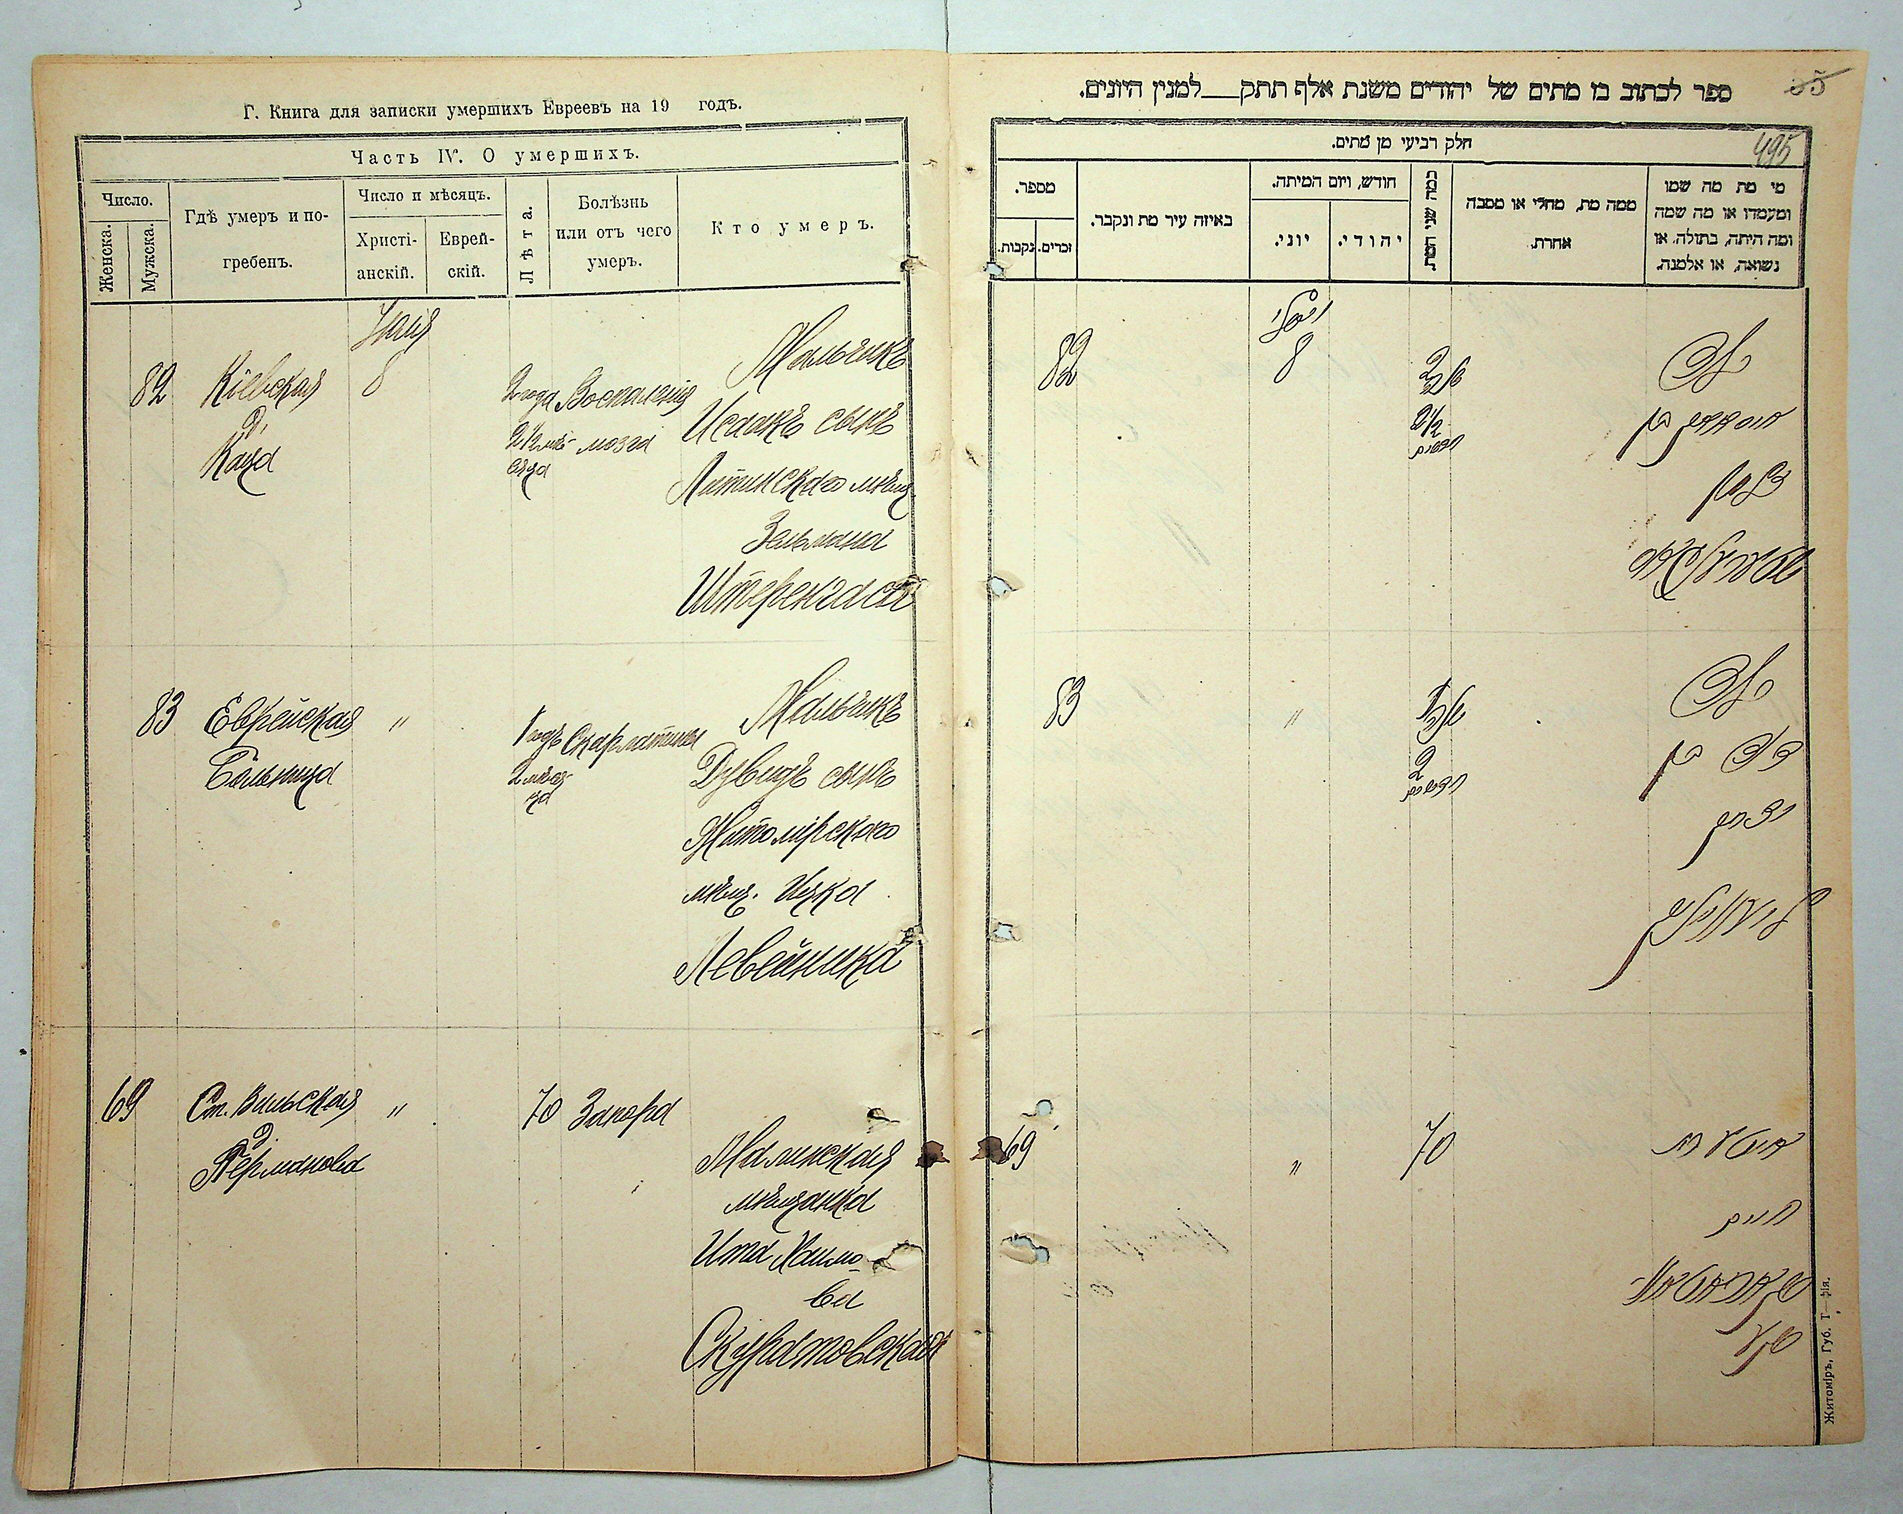 Г. Книга для записки умершихъ Евреевъ на 19 годъ.
Часть IV. О умершихъ.
Число.
Женска.
Мужска.
Гдѣ умеръ и по-
гребенъ.
Число и мѣсяцъ.
Христі-
анскій.
Еврей-
скій.
Лѣта.
Болѣзнь
или отъ чего
умеръ.
Кто умеръ.
Іюля
82
Кіевская
д.
Каца
8
2 года
2 1/2 мѣ-
сяца
Воспаленія
мозга
Мальчикъ
Исаакъ сынъ
Летинскаго мѣщ.
Зельмана
Штеренгаса
83
Еврейская
Больница
"
1 годъ
2 мѣся-
ца
Скарлатины
Мальчикъ
Дувидъ сынъ
Житомірскаго
мѣщ. Ицка
Левейника
69
Ст. Вильская
д.
Германова
"
70
Запора
Малинская
мѣщанка
Ита Хаимо-
ва
Скуратовская
ספר לכתוב בו מתים של יהודים משנת אלף תתק___למנין היונים.
35
495
חלק רביעי מן מתים.
מספר.
נקבות.
זכרים.
באיזה עיר מת ונקבר.
חודש, ויום המיתה.
יוני.
יהודי.
כמה שני המת.
ממה מת, מחלי או מסבה
אחרת.
מי מת מה שמו
ומעמדו או מה שמה
ומה היתה, בתולה, או
נשואה, או אלמנה.
יולי
82
8
2
שנה
2 1/2
חדשים
ילד
בן
זלמן
83
"
1 שנה
2
חדשים
ילד
דוד בן
איצק
69
"
70
חיים
Житоміръ, Губ. Т—фія.